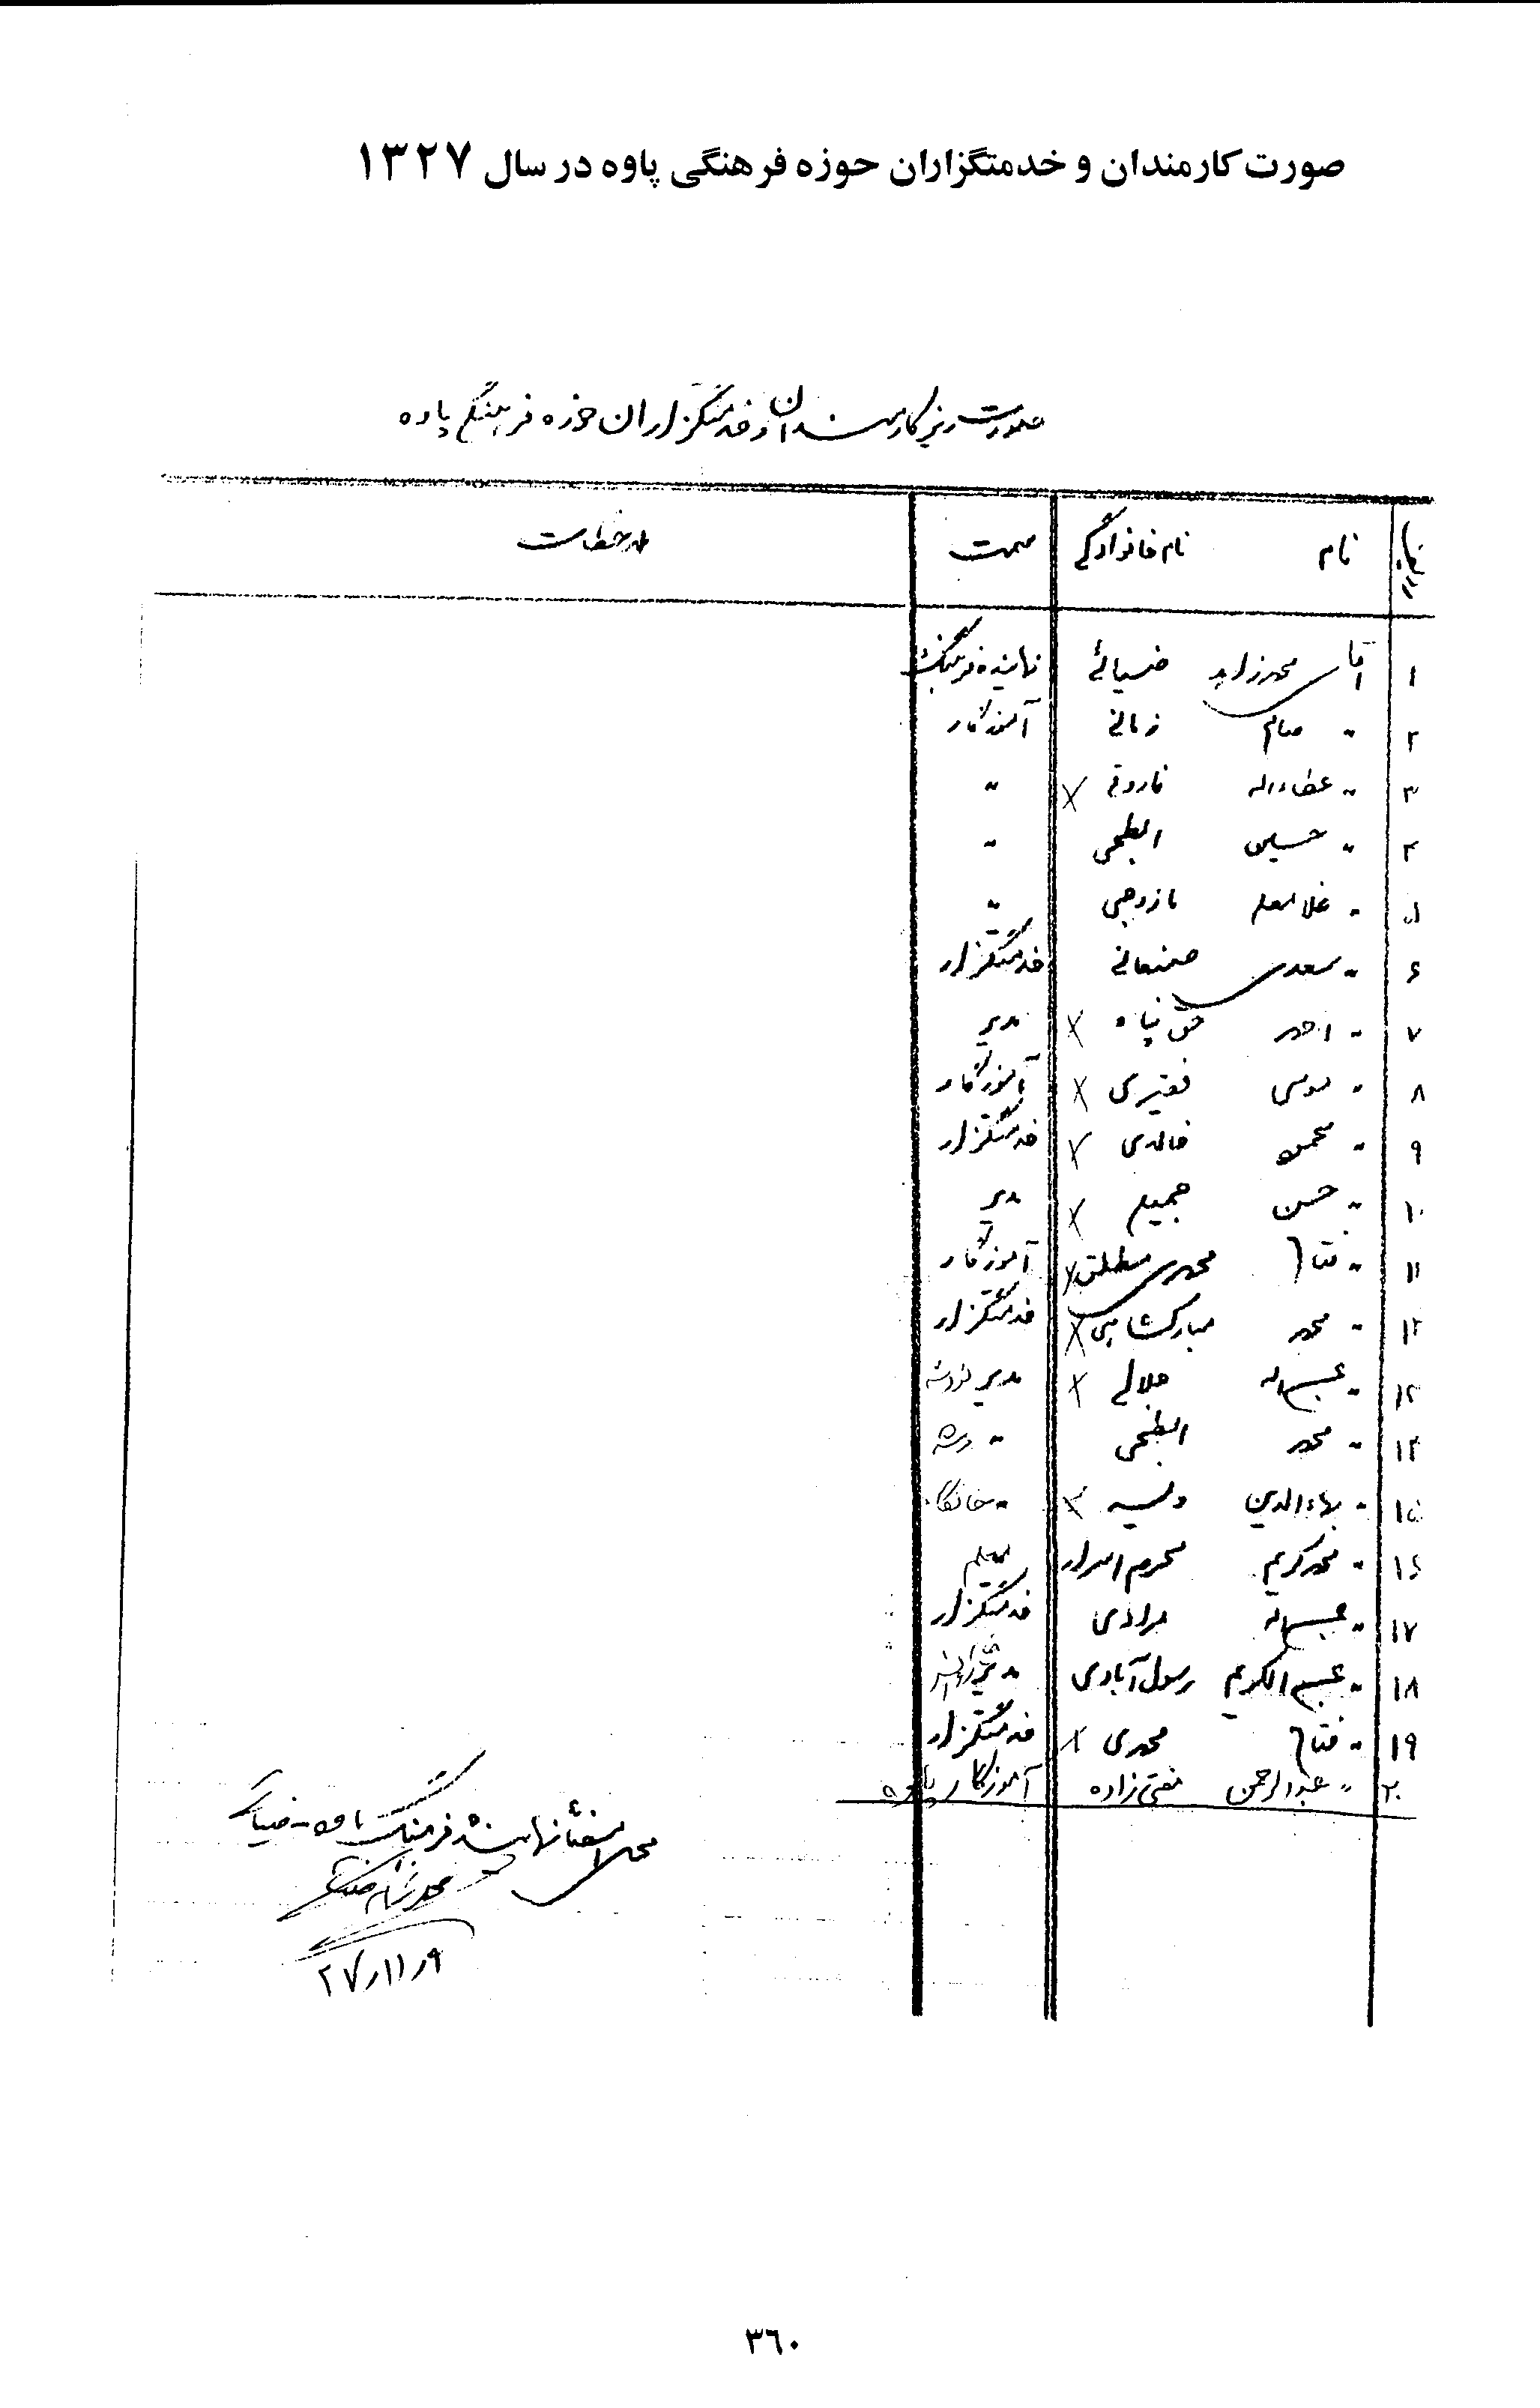 صورت کارمندان و خدمتگزاران حوزه فرهنگی پاوه در سال ۱۳۲۷
صورت ریز کارمندان و خدمتگزاران حوزه فرهنگی پاوه
نام نام خانوادگی سمت ملاحظات
۱ آقای محمد زاهد ضیائی نماینده فرهنگ
۲ " صالح زمانی آموزگار
۳ " عطاءاله فاروقی × "
۴ " حسین ابطحی "
۵ " غلامعلی "
۶ " سعدی صنعانی خدمتگزار
۷ " احمد حق پناه × مدیر
۸ " موسی فقیری × آموزگار
۹ " محمود خالدی × خدمتگزار
۱۰ " حسن × مدیر
۱۱ " فتاح محمدی مطلق × آموزگار
۱۲ " محمد مبارکشاهی × خدمتگزار
۱۳ " جلالی × مدیر نودشه
۱۴ " محمد ابطحی "
۱۵ " بهاءالدین × " خانگاه
۱۶ " محمد کریم محرم اسرار معلم
۱۷ " مرادی خدمتگزار
۱۸ " عبدالکریم رسول آبادی مدیر
۱۹ " فتاح محمدی × خدمتگزار
۲۰ " عبدالرحمن مفتی زاده آموزگار پاوه
محل امضاء نماینده فرهنگ پاوه - ضیائی
۲۷/۱۱/۹
۳۶۰